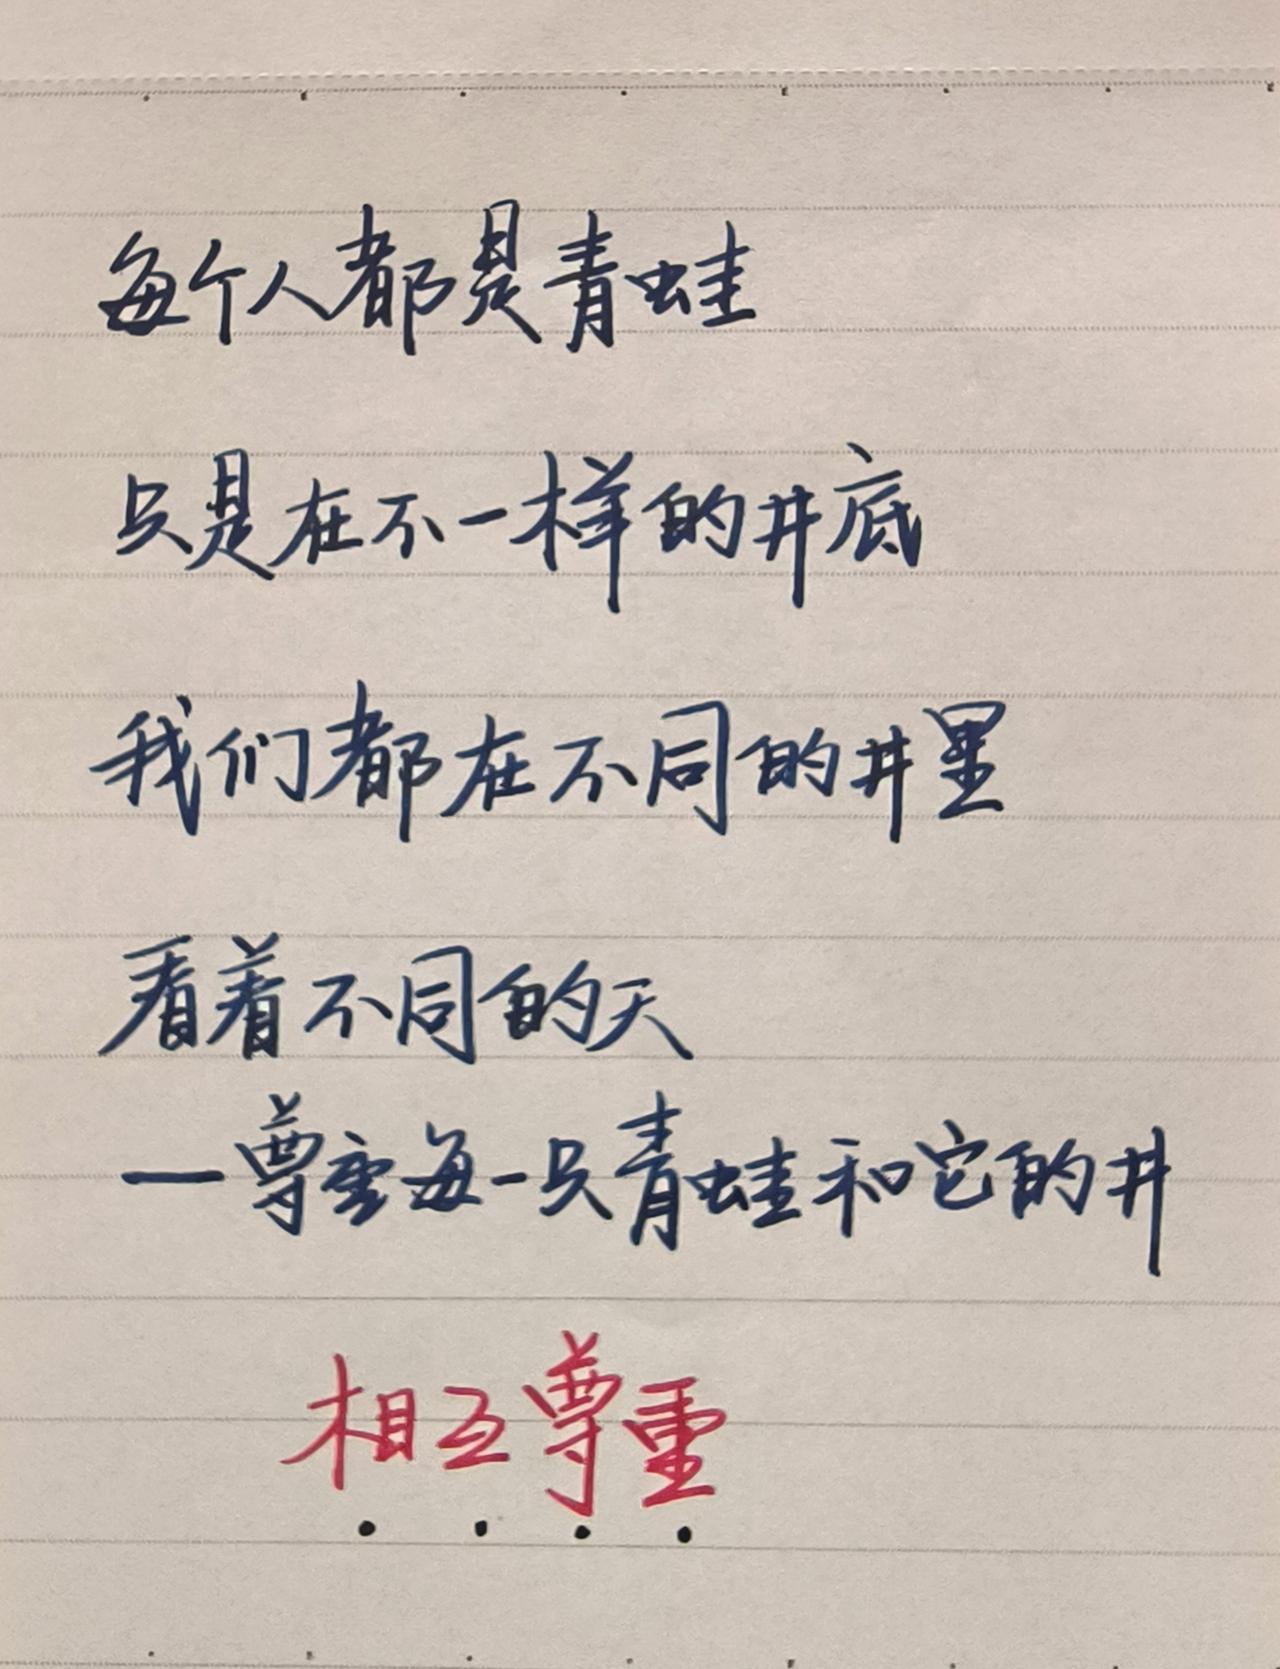 每个人都是青蛙
只是在不一样的井底
我们都在不同的井里
看着不同的天
—尊重每一只青蛙和它的井
相互尊重